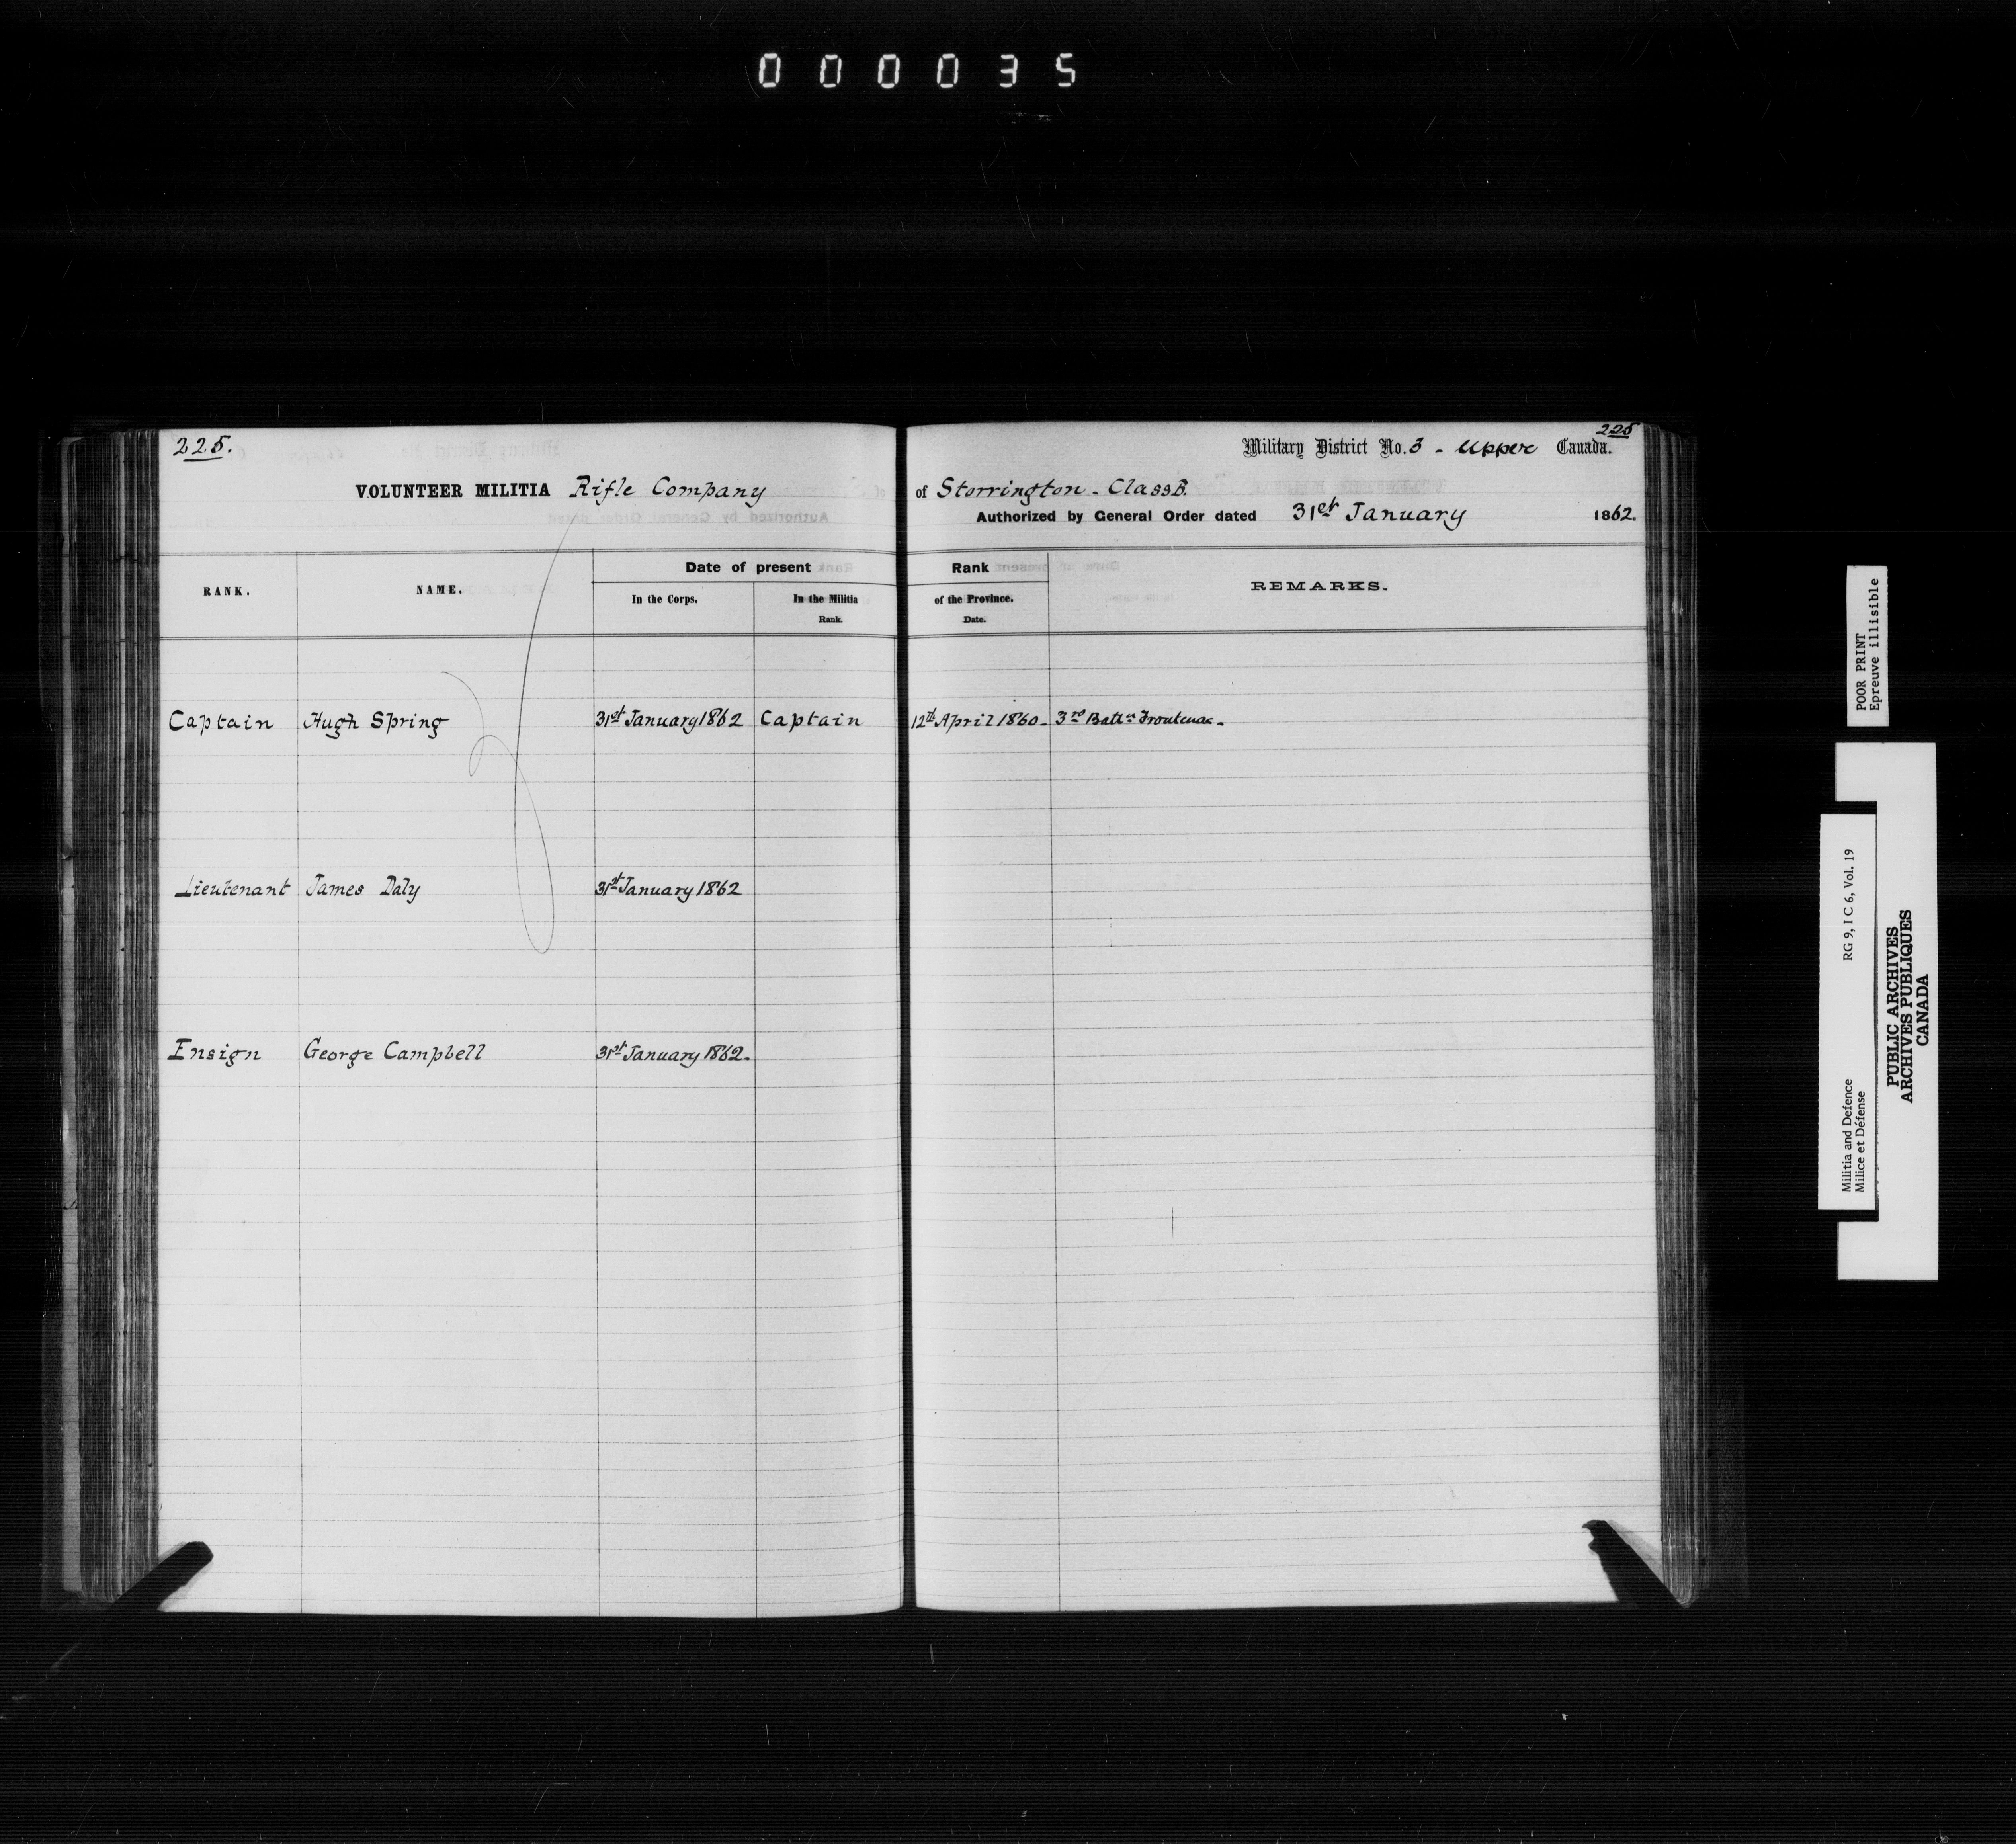 000035
225.
225
Military District No. 3 - Upper Canada.
VOLUNTEER MILITIA Rifle Company of Storrington - Class B.
Authorized by General Order dated 31st January 1862.
RANK. NAME. Date of present Rank REMARKS.
In the Corps. In the Militia of the Province.
Rank. Date.
Captain Hugh Spring 31st January 1862 Captain 12th April 1860 - 3rd Battn Frontenac -
Lieutenant James Daly 31st January 1862
Ensign George Campbell 31st January 1862 -
POOR PRINT
Epreuve illisible
Militia and Defence RG 9, I C 6, Vol. 19
Milice et Défense
PUBLIC ARCHIVES
ARCHIVES PUBLIQUES
CANADA